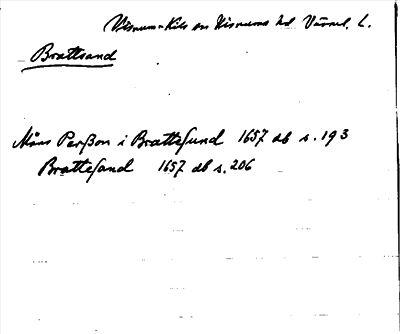 Visnum-Kils sn Visnums hd Värml. L.
Brattsand
Måns Perßon i Brattesund 1657 db s. 193
Brattesand 1657 db s. 206